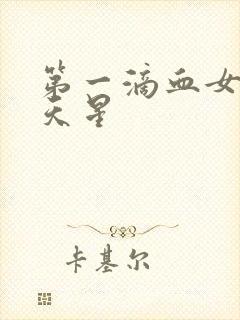 第一滴血女
天星
卡基尔